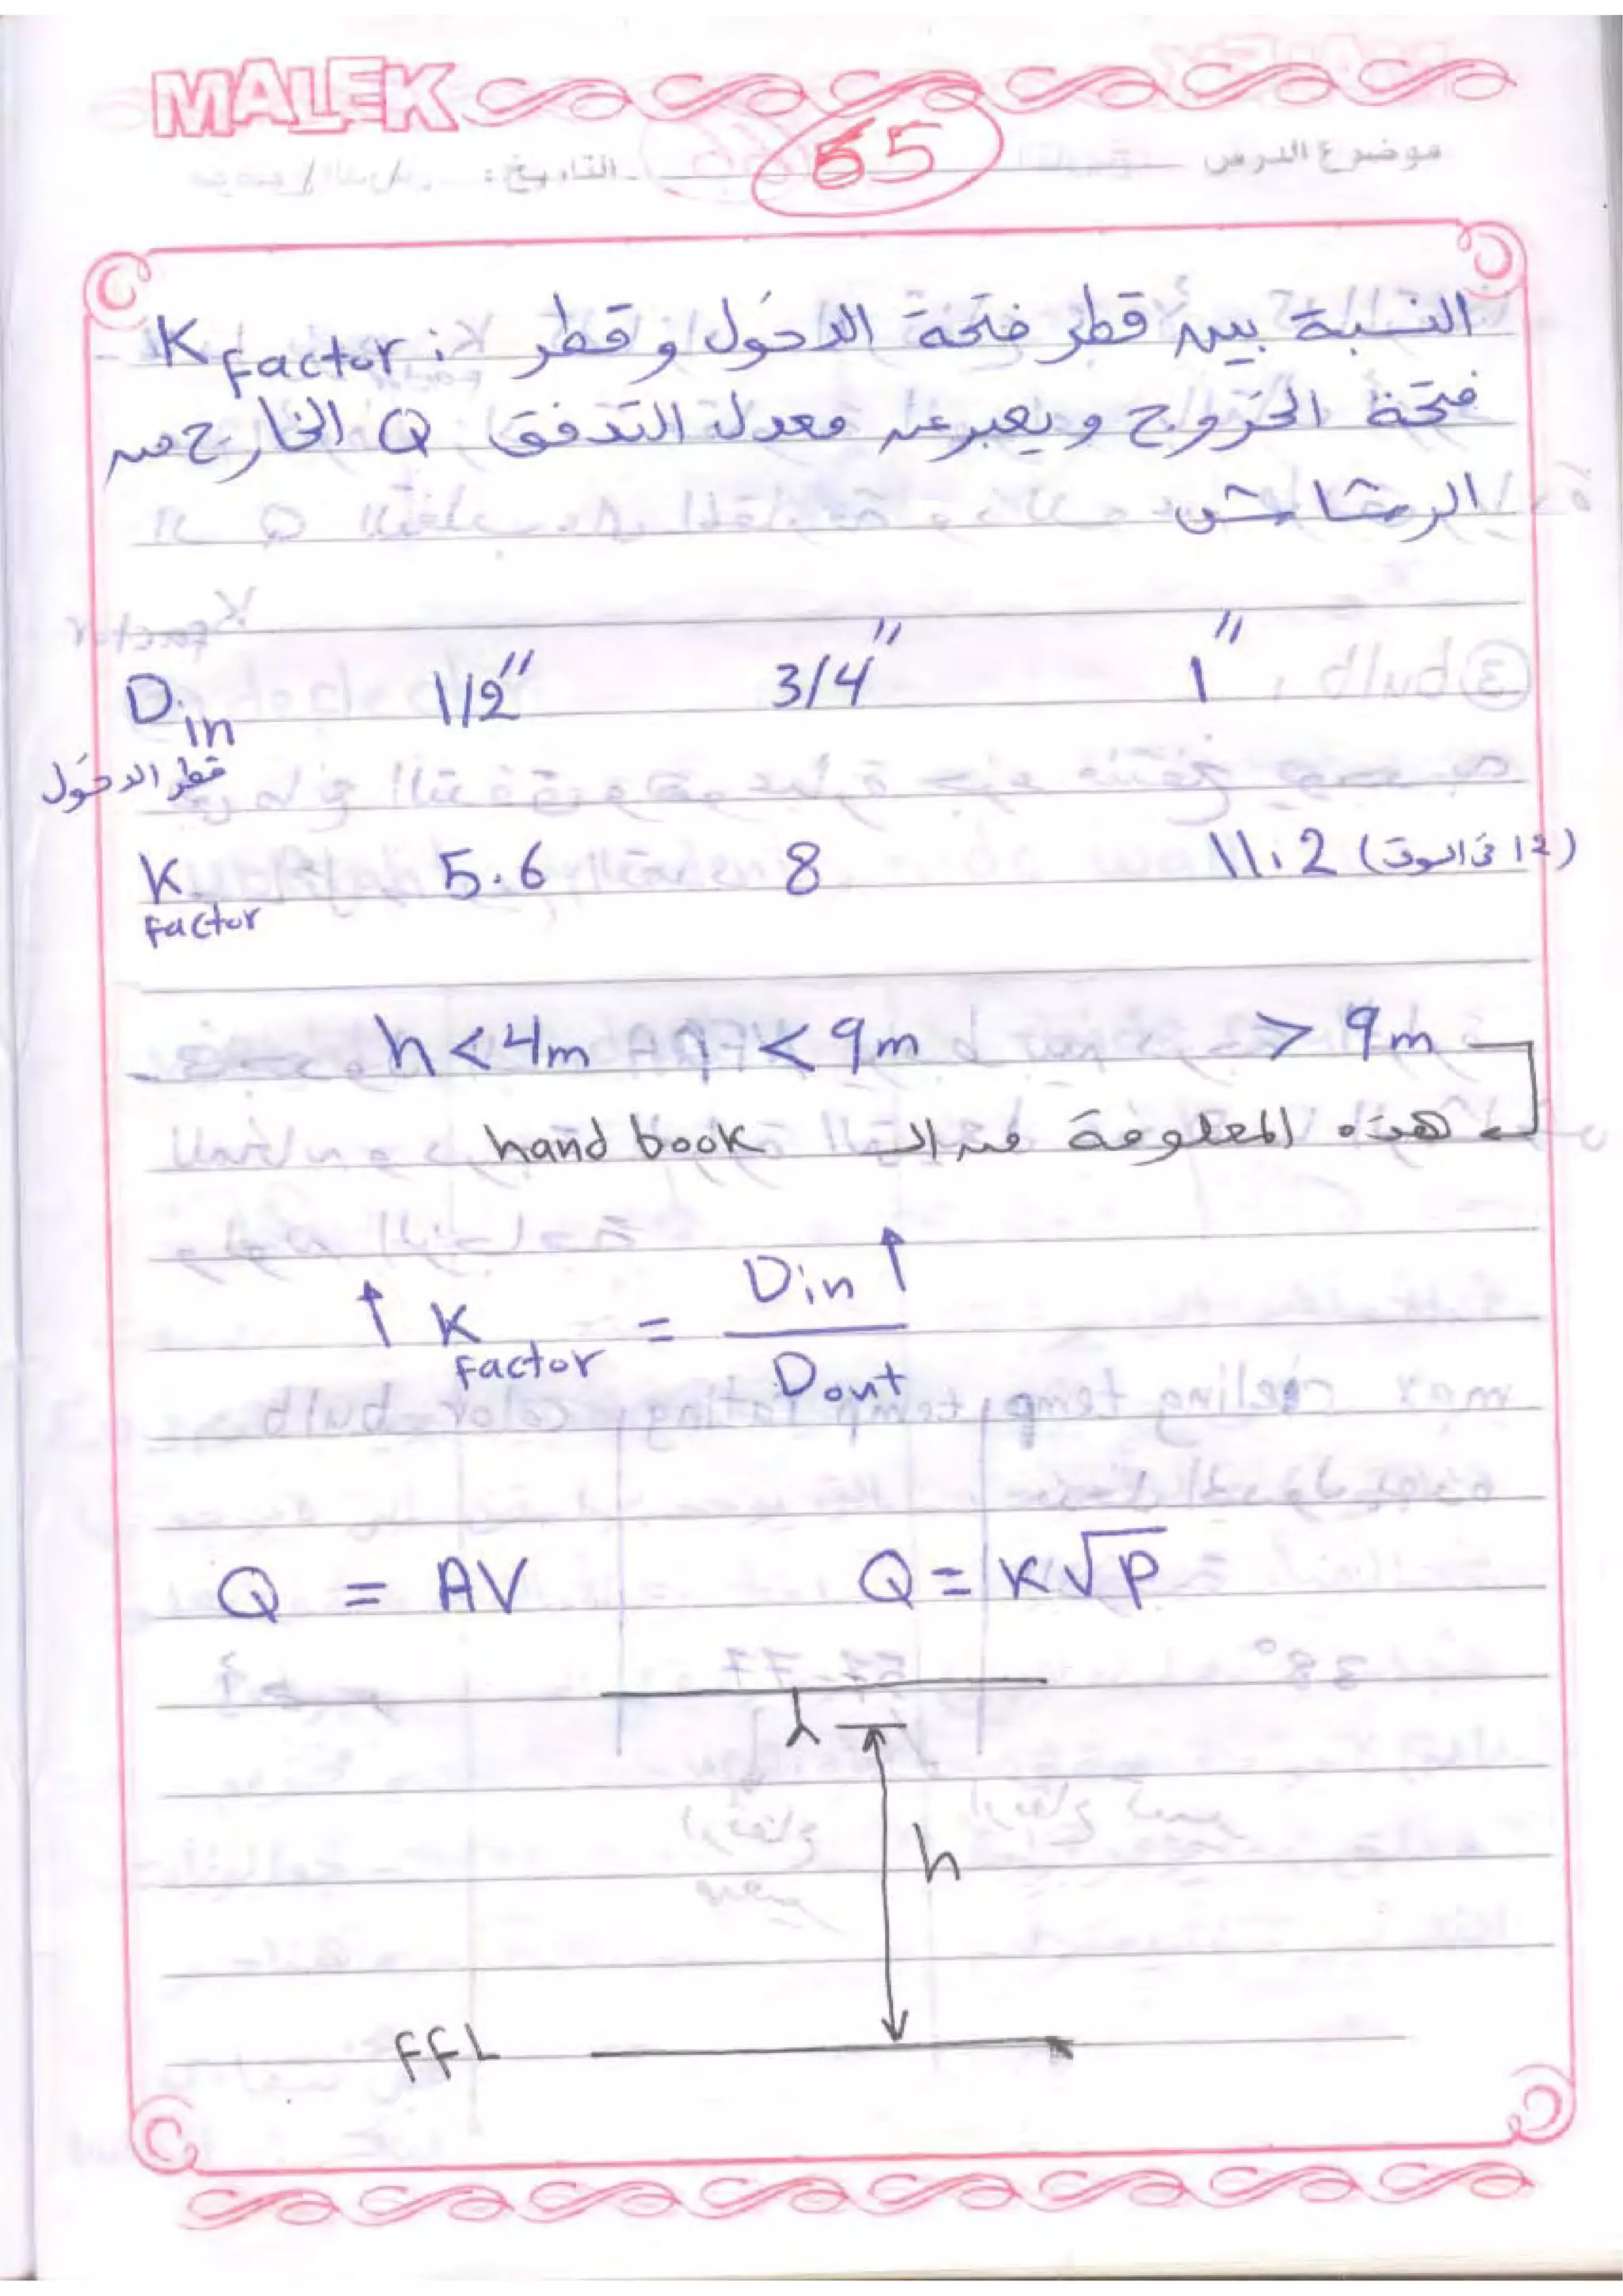 MALEK
موضوع الدرس التاريخ :
65
K Factor : النسبة بين قطر فتحة الدخول و قطر
فتحة الخروج و يعبر عن معدل التدفق Q الخارج من
الرشاش
Din 1/2" 3/4" 1"
قطر الدخول
K Factor 5.6 8 11.2 (12 فى السوق)
h < 4m < 9m > 9m
هذه المعلومة من الـ hand book
↑ K Factor = Din ↑ / Dout
Q = AV Q = K√P
h
FFL